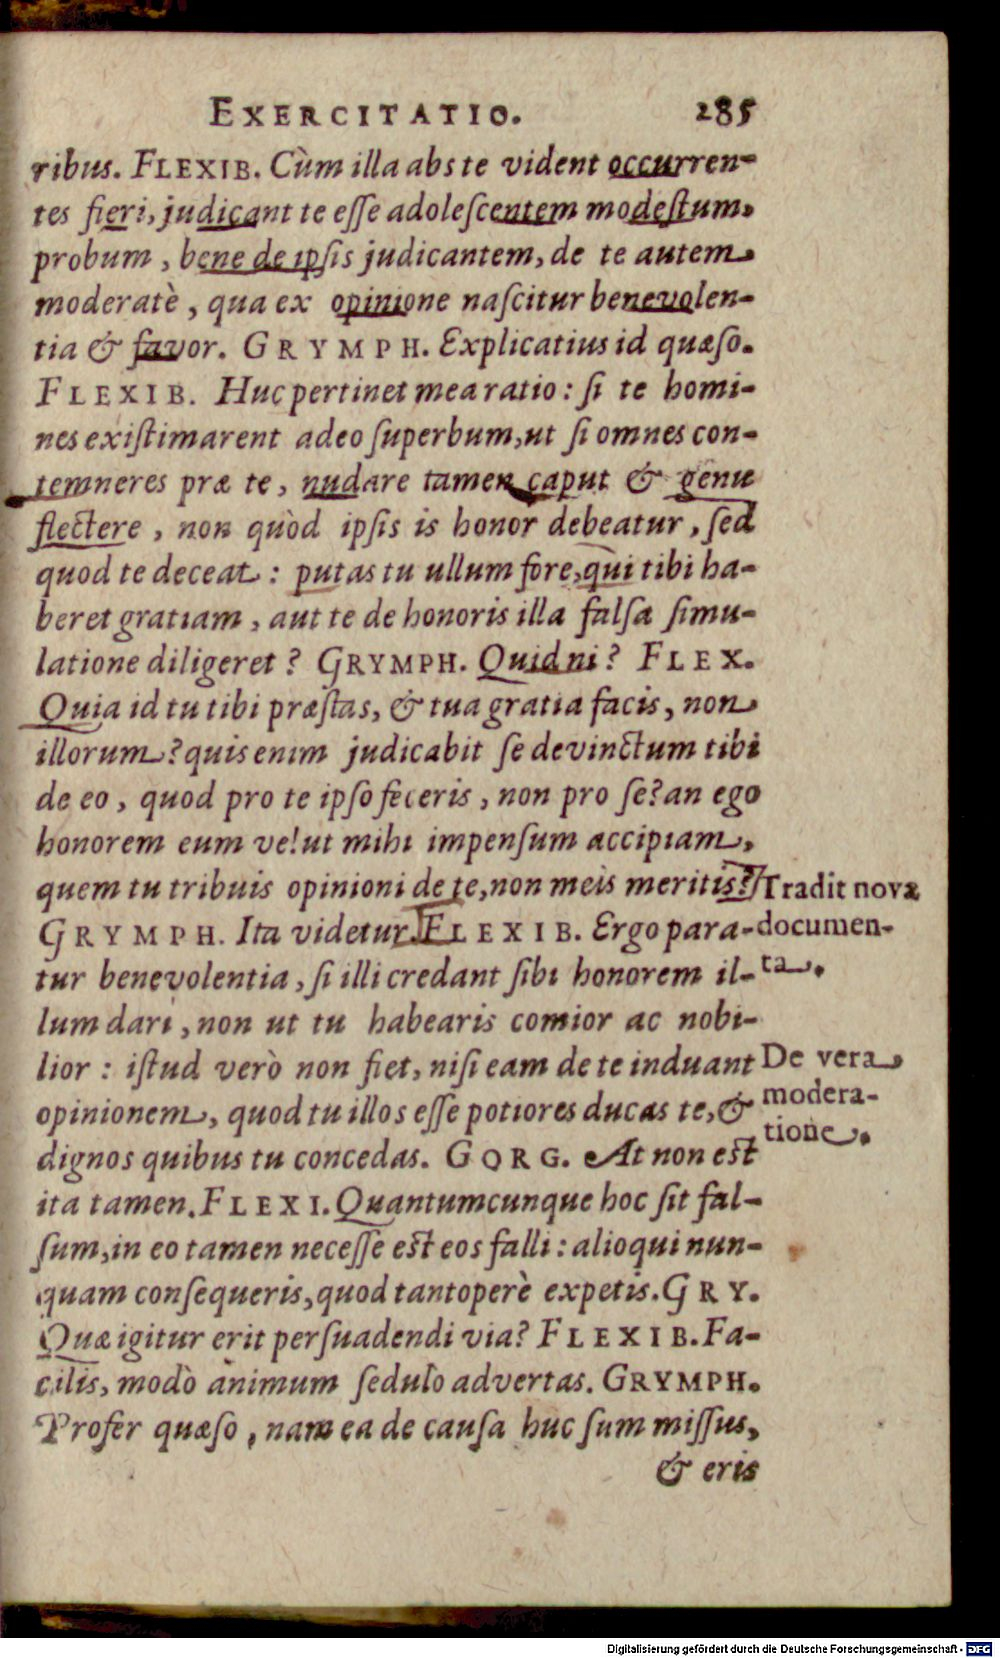 EXERCITATIO. 285
ribus. FLEXIB. Cùm illa abs te vident occurren-
tes fieri, judicant te eſſe adoleſcentem modeſtum,
probum, bene de ipſis judicantem, de te autem
moderatè, qua ex opinione naſcitur benevolen-
tia & favor. GRYMPH. Explicatius id quæſo.
FLEXIB. Huc pertinet mea ratio: ſi te homi-
nes exiſtimarent adeo ſuperbum, ut ſi omnes con-
temneres præ te, nudare tamen caput & genu
flectere, non quòd ipſis is honor debeatur, ſed
quod te deceat: putas tu ullum fore, qui tibi ha-
beret gratiam, aut te de honoris illa falſa ſimu-
latione diligeret? GRYMPH. Quid ni? FLEX.
Quia id tu tibi præſtas, & tua gratia facis, non
illorum? quis enim judicabit ſe devinctum tibi
de eo, quod pro te ipſo feceris, non pro ſe? an ego
honorem eum velut mihi impenſum accipiam,
quem tu tribuis opinioni de te, non meis meritis?
Tradit nova
documen-
ta.
GRYMPH. Ita videtur. FLEXIB. Ergo para-
tur benevolentia, ſi illi credant ſibi honorem il-
lum dari, non ut tu habearis comior ac nobi-
lior: iſtud verò non fiet, niſi eam de te induant
De vera
modera-
tione.
opinionem, quod tu illos eſſe potiores ducas te, &
dignos quibus tu concedas. GORG. At non eſt
ita tamen. FLEXI. Quantumcunque hoc ſit fal-
ſum, in eo tamen neceſſe eſt eos falli: alioqui nun-
quam conſequeris, quod tantoperè expetis. GRY.
Quæ igitur erit perſuadendi via? FLEXIB. Fa-
cilis, modò animum ſedulò advertas. GRYMPH.
Profer quæſo, nam ea de cauſa huc ſum miſſus,
& eris
Digitalisierung gefördert durch die Deutsche Forschungsgemeinschaft - DFG